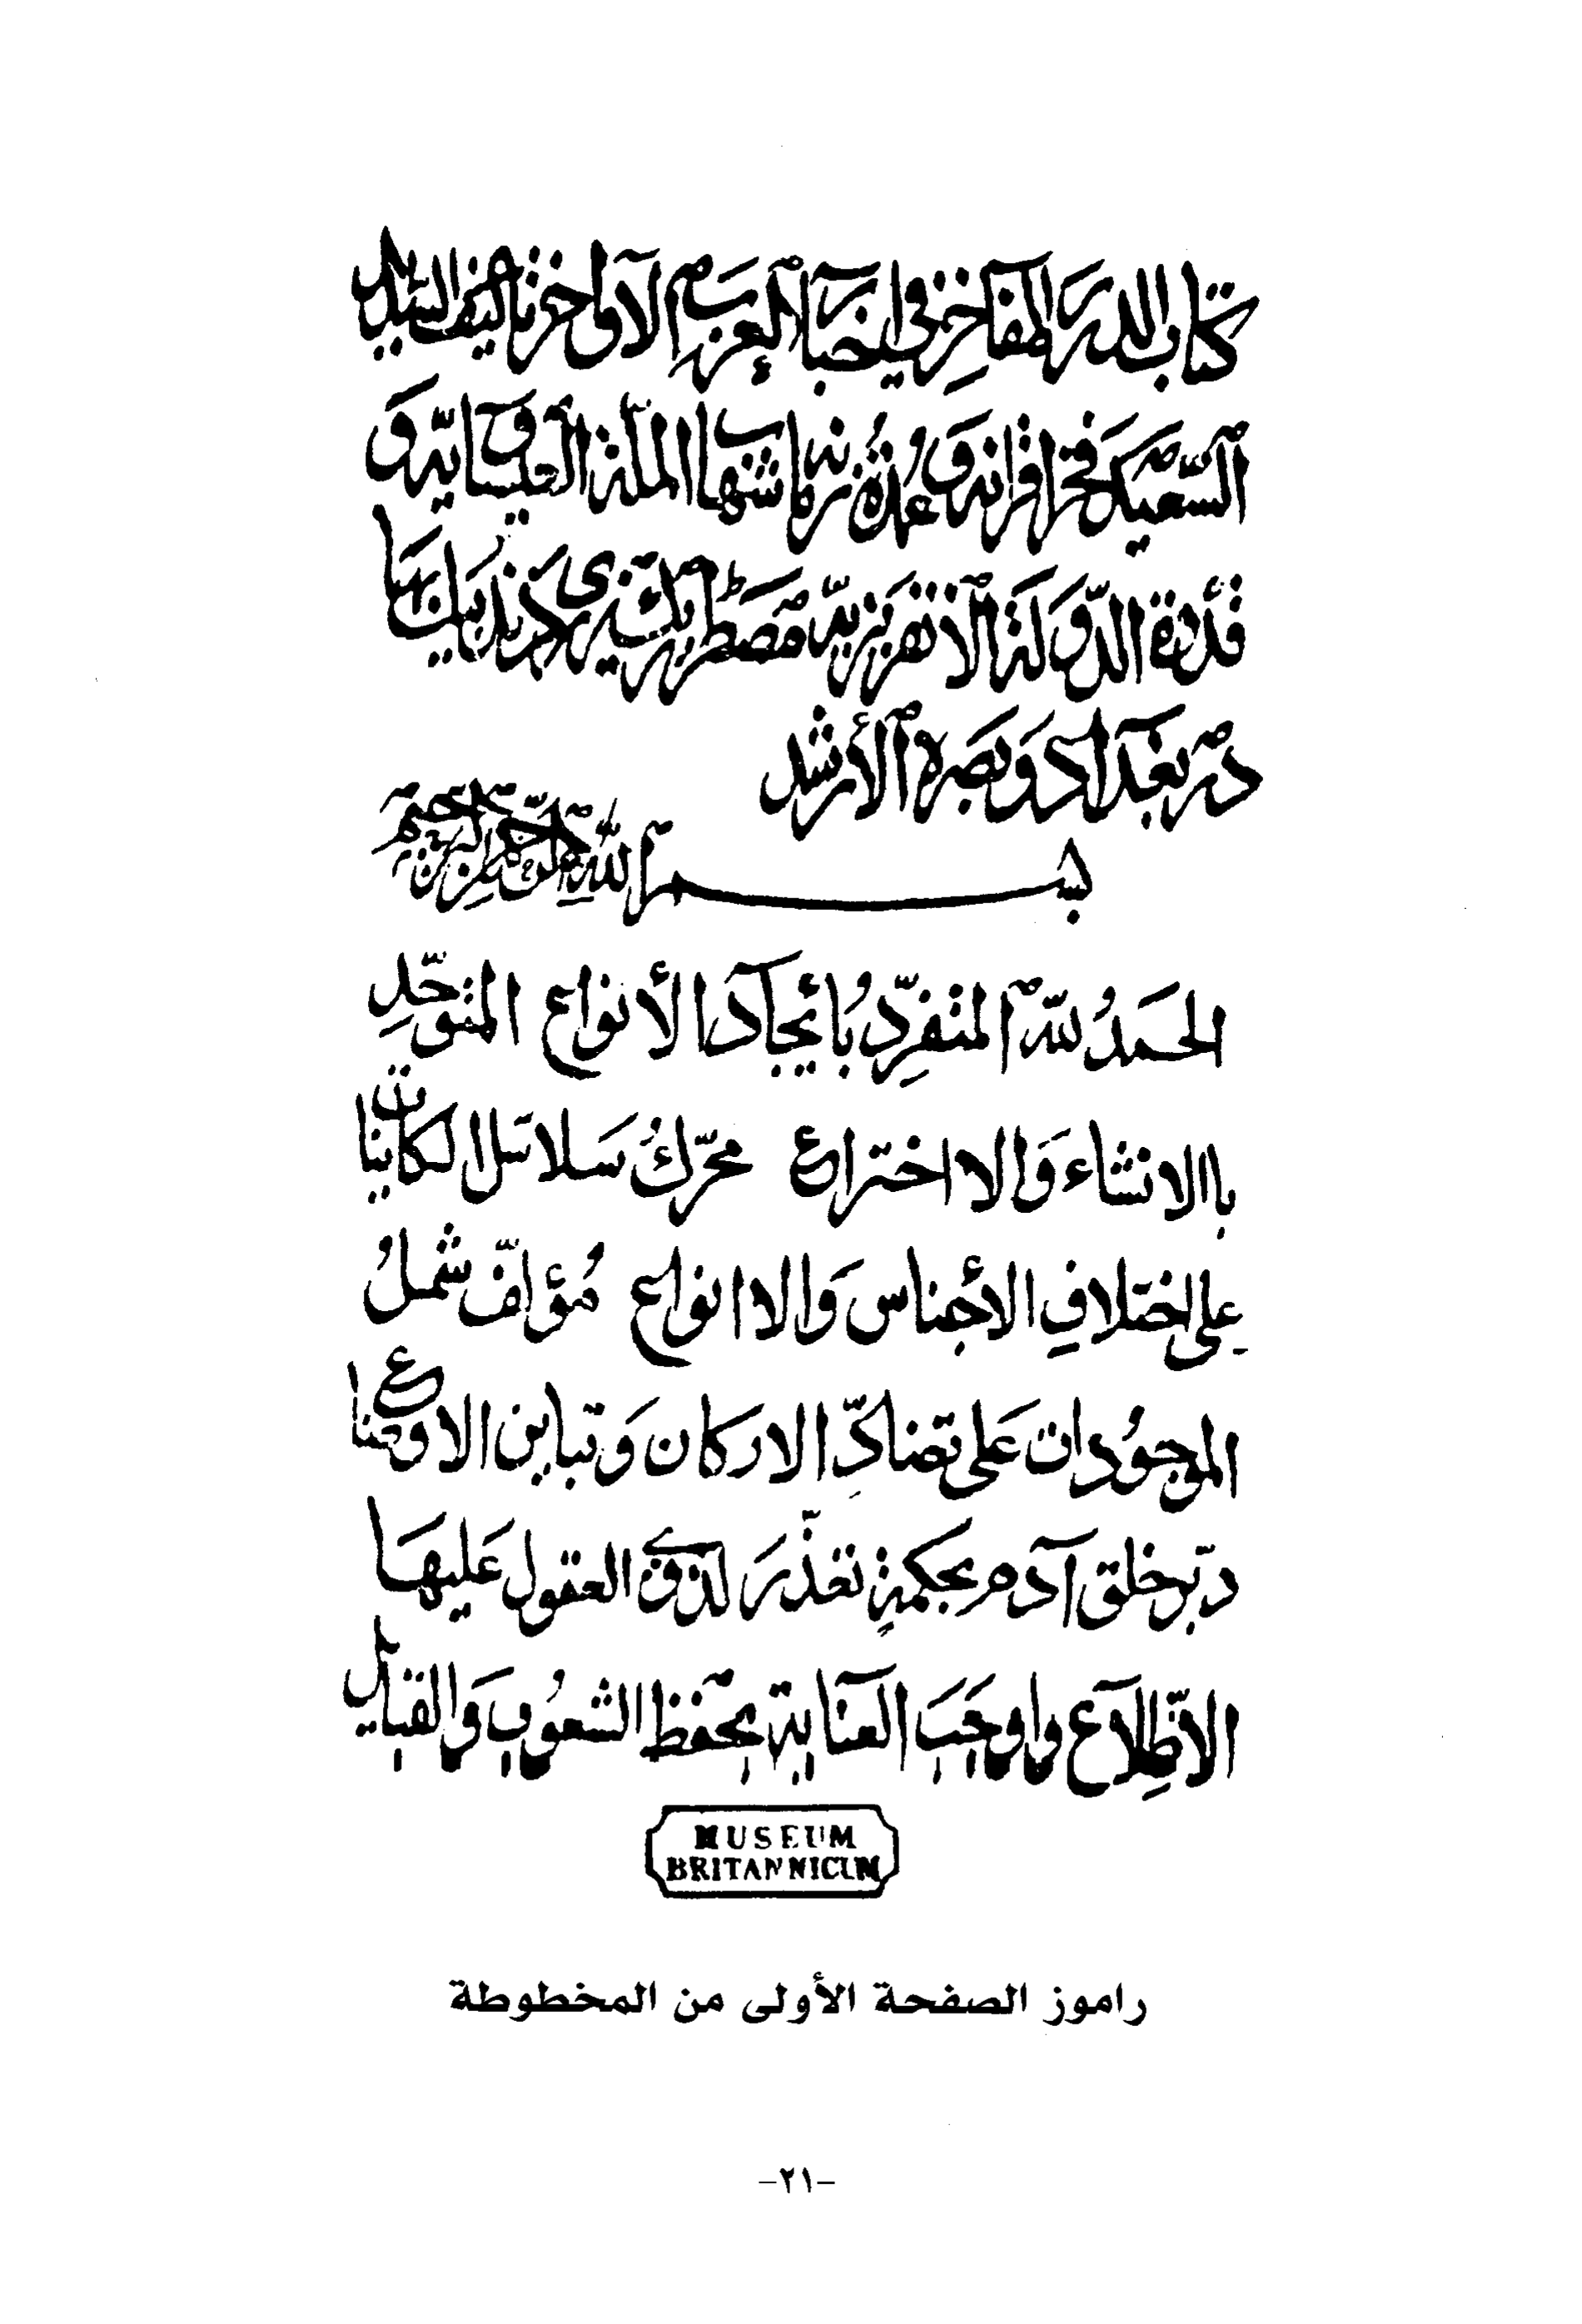 كتاب الدرر المفاخر في اخبار العرب الاواخر تأليف السيد
السعيد فخر اقرانه وعمدة زمانه اشتهابا لملة العيساية و
قدوة الدولة الانقريزية مصطر
در بغداد و بصره الأرشد
بسم الله الرحمن الرحيم
الحَمدُ للّه المتفرِّد بُائيجآدَا الأنواع المتوحِّدِ
باالانشاء وَالاختراع محرّكُ سَلاسَل الكائنات
على اختلافِ الأجناس وَالاانواع مُؤلفّ شملُ
الموجوُدات عَلى تضادّ الاركان وَتباين الاوضاع
دبر خلق آدم بحكمةٍ تعذّرَ لذوي العقول عَليهَا
الاطِّلآع واوجَبَ العنَاية بحفظ الشعوُب وَالقبايل
MUSEUM
BRITANNICUM
راموز الصفحة الأولى من المخطوطة
-٢١-